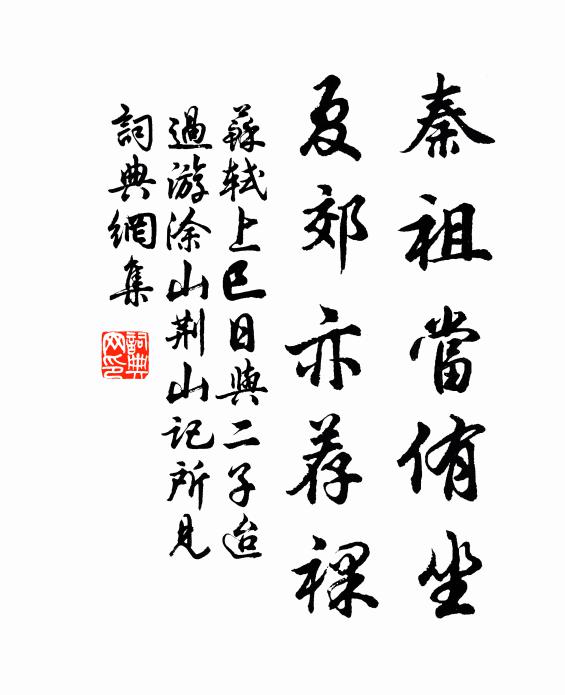 秦祖當侑坐
夏郊亦荐祼
蘇軾上巳日與二子迨
過游涂山荆山記所見
詞典網集
詞典
网印